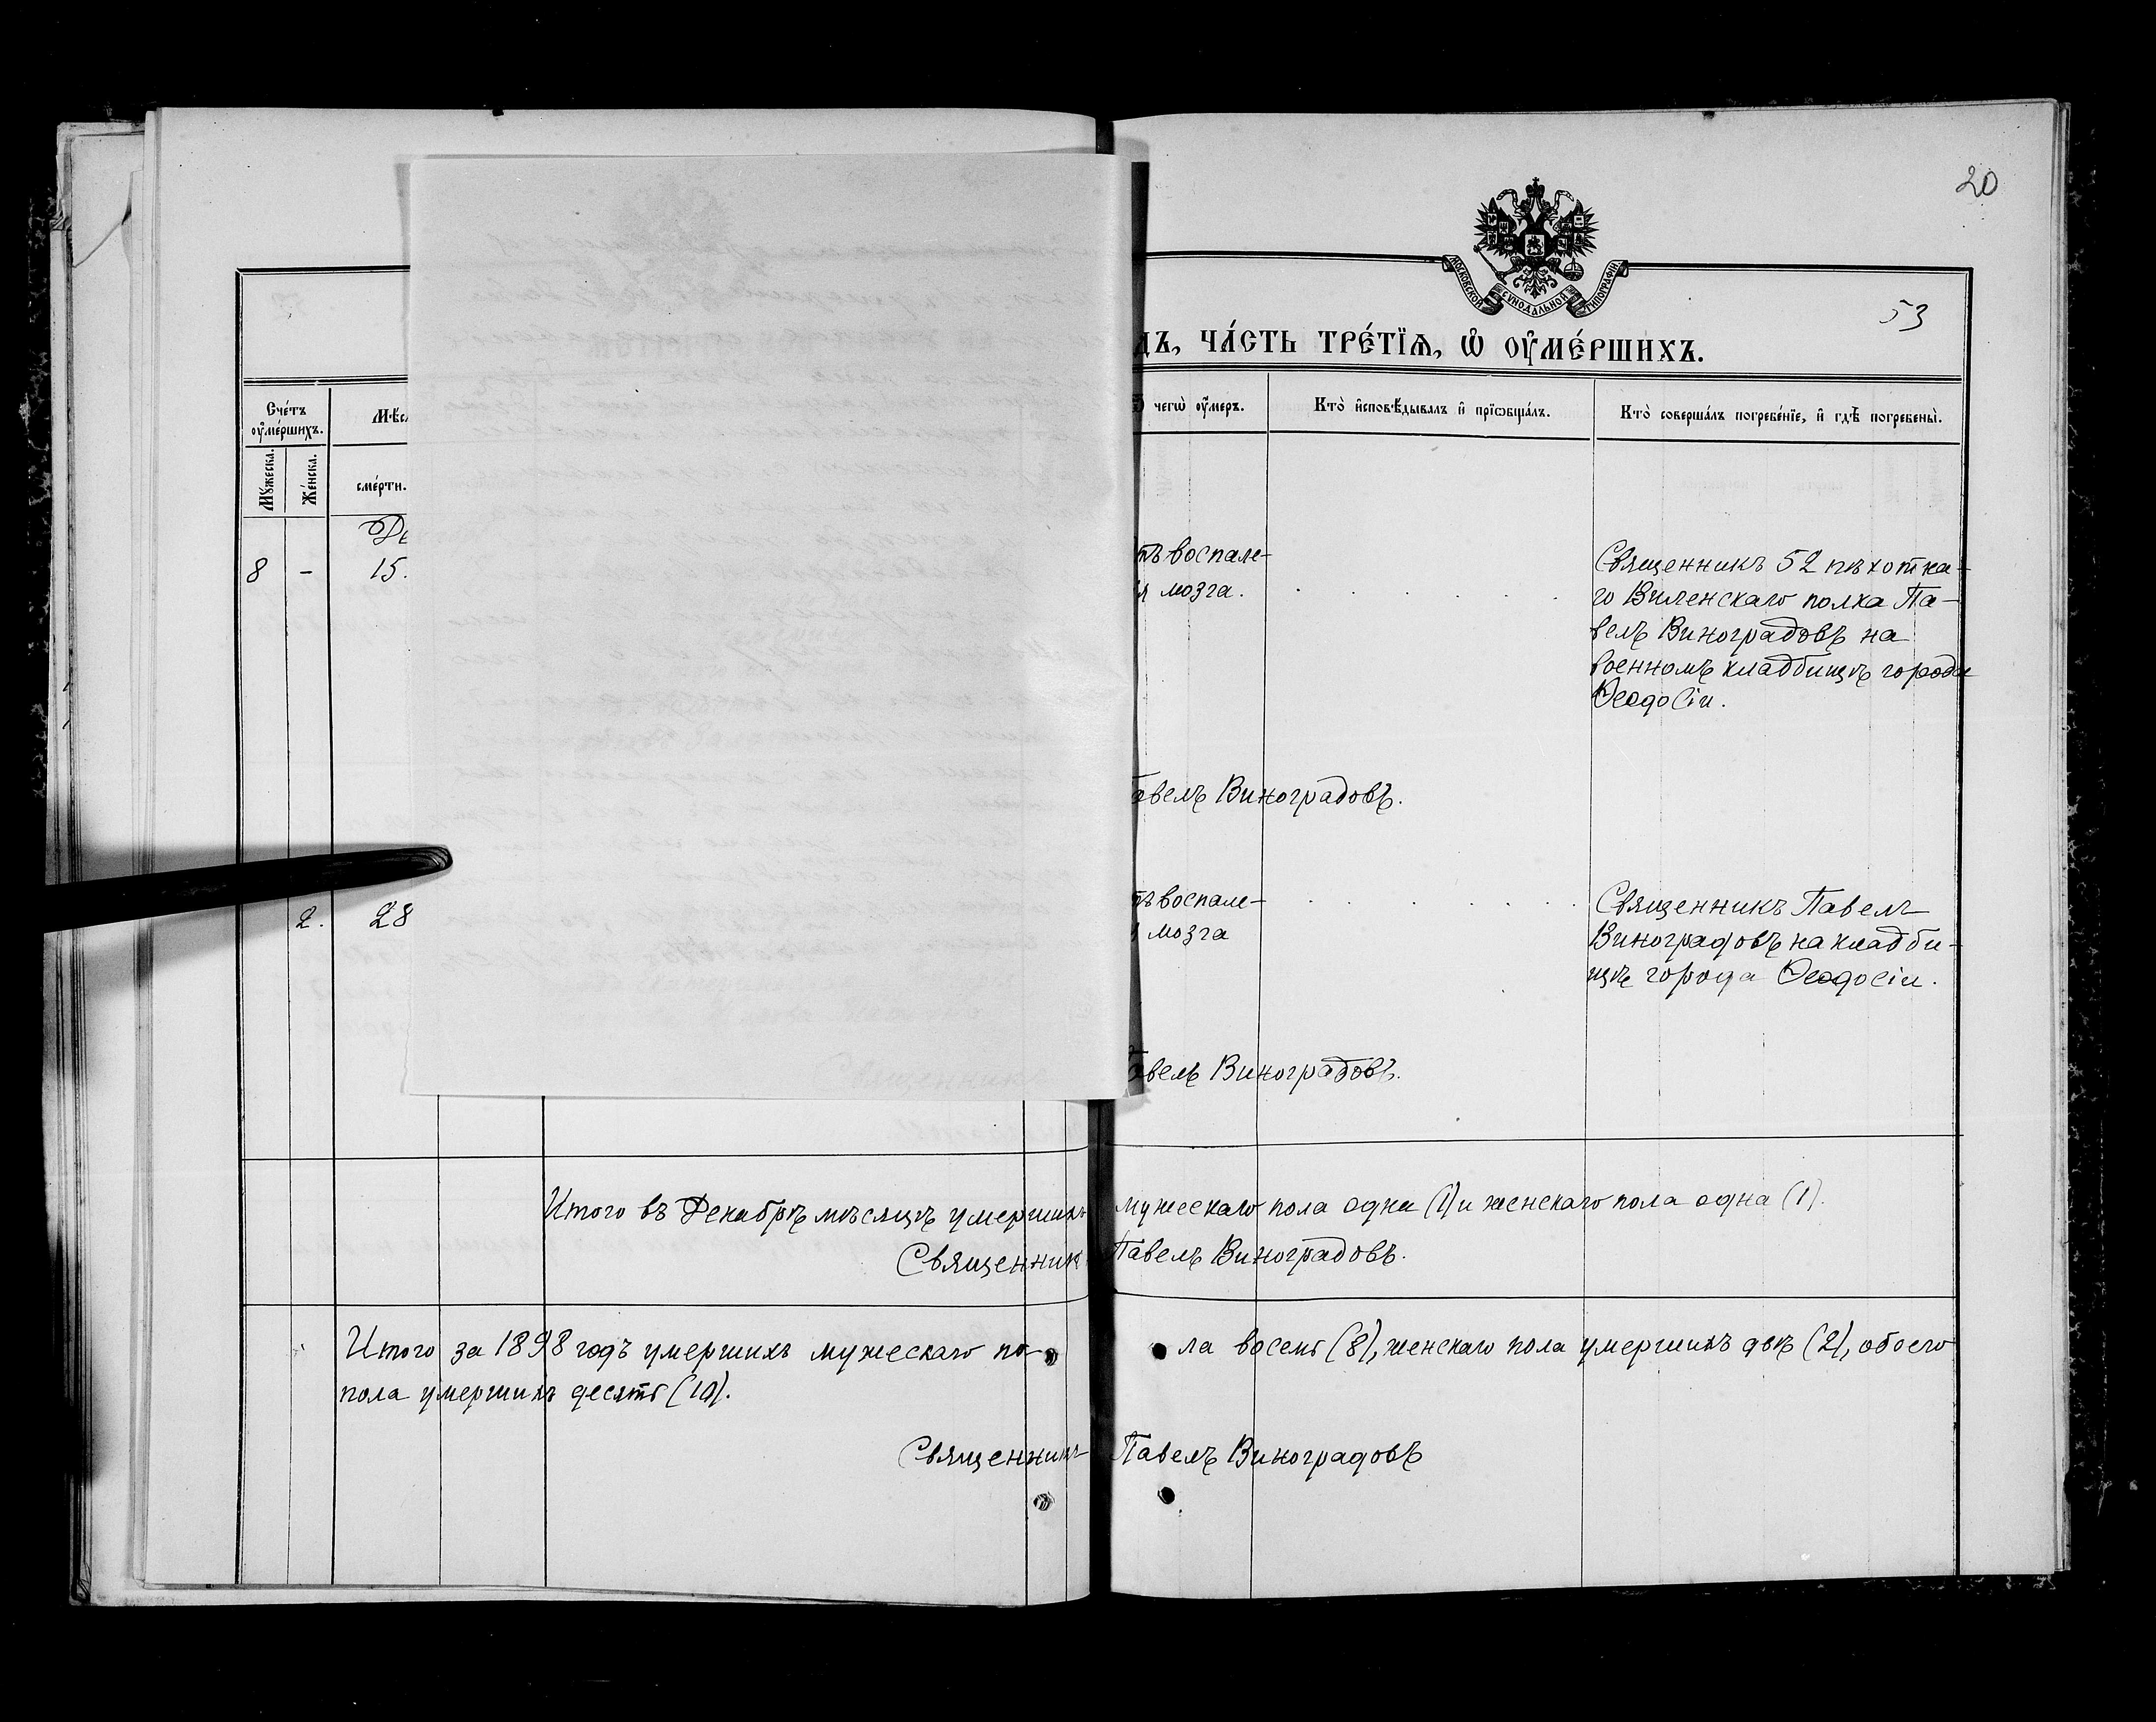 20
МОСКОВСКОЙ СѴНОДАЛЬНОЙ ТИПОГРАФІИ
53
ДЪ, ЧА́СТЬ ТРЕ́ТІѦ, Ѡ҆ ОУ҆МЕ́РШИХЪ.
Сче́тъ
оу҆ме́ршихъ.
Мѣ́сѧ
Ѿ чегѡ̀ оу҆́меръ.
Кто̀ и҆сповѣ́дывалъ и҆ прїѡбща́лъ.
Кто̀ соверша́лъ погребе́нїе, и҆ гдѣ̀ погребены̀.
Мꙋ́жеска.
Же́нска.
сме́рти.
Де
8 - 15.
тъ воспале-
я мозга.
Священникъ 52 пѣхотна-
го Виленскаго полка Па-
велъ Виноградовъ на
военномъ кладбищѣ города
Ѳеодосіи.
авелъ Виноградовъ.
2. 28
тъ воспале-
мозга
Священникъ Павелъ
Виноградовъ на кладби-
щѣ города Ѳеодосіи.
авелъ Виноградовъ.
Итого въ Декабрѣ мѣсяцѣ умершихъ мужескаго пола одинъ (1) и женскаго пола одна (1).
Священник Павелъ Виноградовъ.
Итого за 1898 годъ умершихъ мужескаго по- ла восемь (8), женскаго пола умершихъ двѣ (2), обоего
пола умершихъ десять (10).
Священникъ Павелъ Виноградовъ